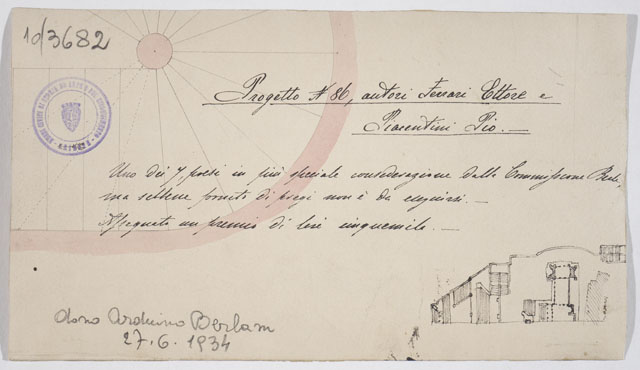 10/3682
Progetto N 86, autori Ferrari Ettore e
Piacentini Pio. —
Uno dei 7, presi in più speciale considerazione dalla Commissione Reale,
ma sebbene fornito di pregi non è da eseguirsi. —
Assegnato un premio di lire cinquemila. —
dono Arduino Berlam
27.6.1934